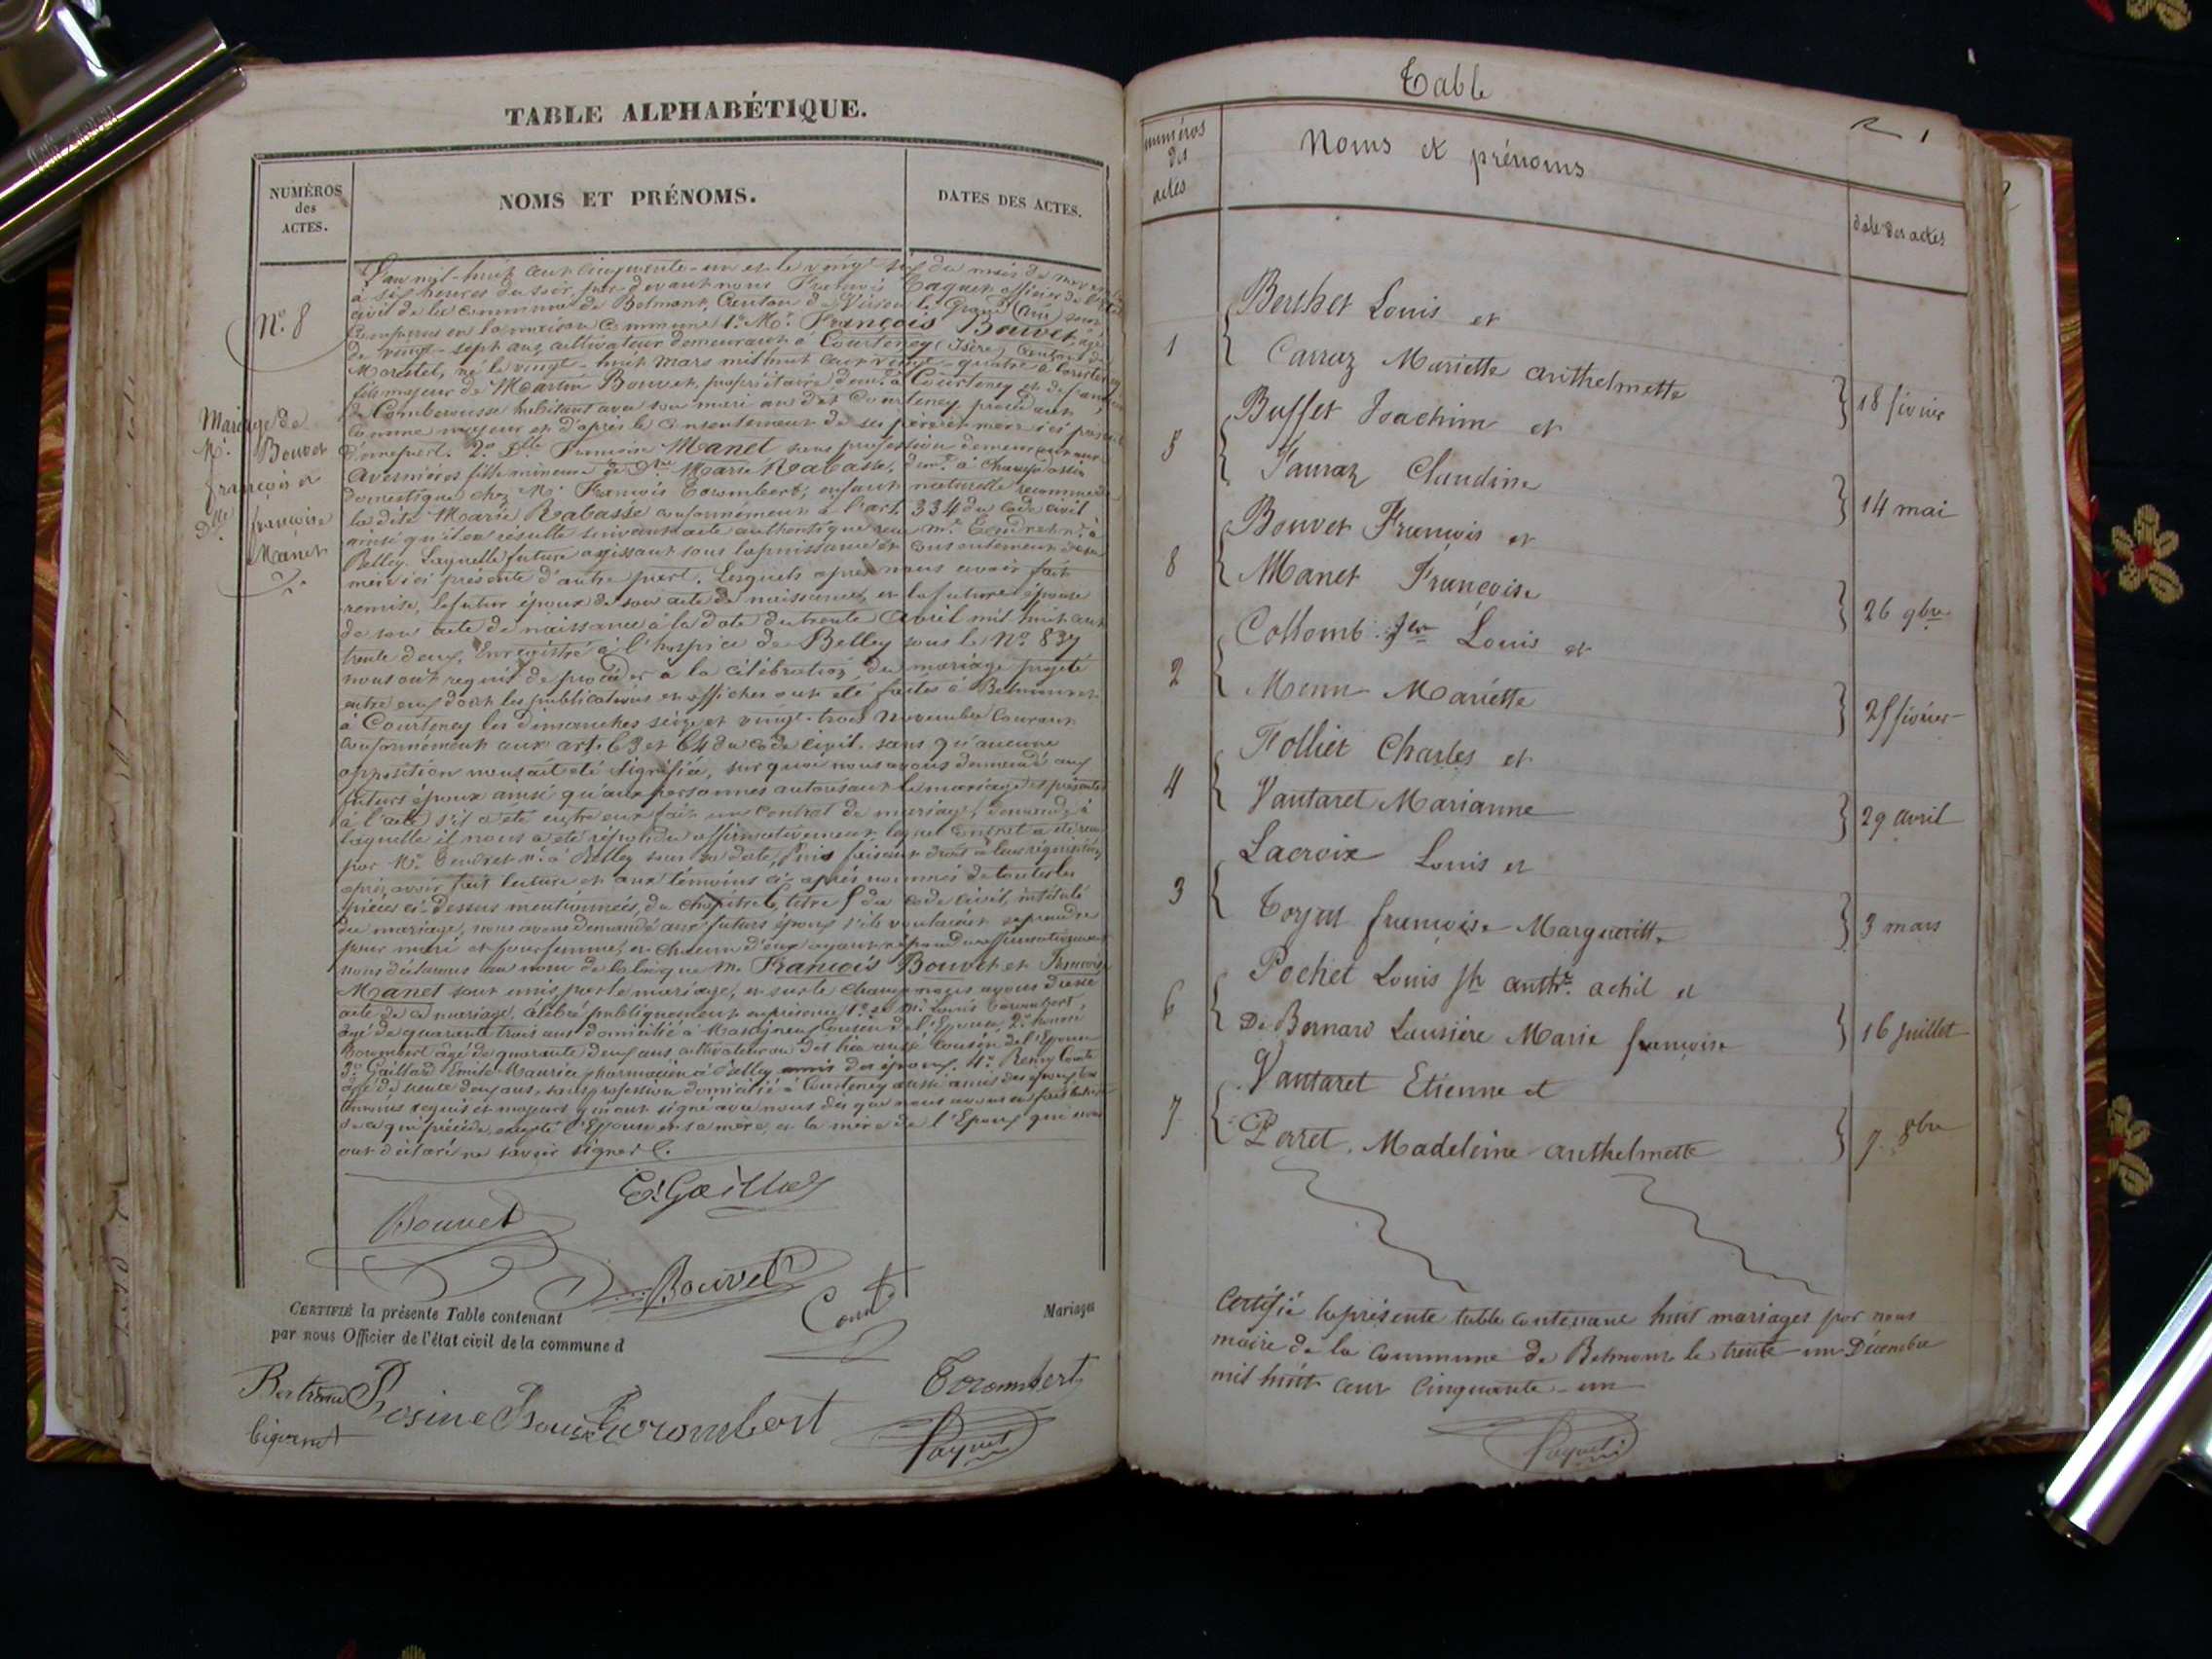 TABLE ALPHABÉTIQUE.
NUMÉROS
des
ACTES.
NOMS ET PRÉNOMS.
DATES DES ACTES.
N° 8
Mariage de
Mr. Bouvet
françois et
Dlle françoise
Manet
L'an mil-huit cent cinquante-un et le vingt six du mois de novembre
à six heures du soir, par-devant nous François Paquet officier de l'état
civil de la commune de Belmont, Canton de Virieu le Grand (Ain) sont
comparus en la maison commune 1° Mr. François Bouvet, agé
de vingt-sept ans, cultivateur demeurant à Courtenay (Isère) Canton de
Morestel, né le vingt-huit mars mil huit cent vingt-quatre à Courtenay
fils majeur de Martin Bouvet, propriétaire demt. à Courtenay et de
de Comberousse habitant avec son mari au dit Courtenay procédant
comme majeur et d'après le consentement de ses père et mère ici présents
d'une part. 2° Dlle Françoise Manet sans profession demeurant aux
Avesnières fille mineure de Dme Marie Rabasse, demt. à Champdossin
domestique chez Mr. François Corombert, enfant naturelle reconnue de
la dite Marie Rabasse conformément à l'art. 334 du Code civil
ainsi qu'il en résulte suivant acte authentique reçu Me. Tendret n.re à
Belley. Laquelle future agissant sous la puissance et consentement de sa
mère ici présente d'autre part. Lesquels après nous avoir fait
remise, le futur époux de son acte de naissance, et la future épouse
de son acte de naissance à la date du trente Avril mil huit cent
trente deux, Enregistré à l'hospice de Belley sous le N° 837
nous ont requis de procéder à la célébration du mariage projeté
entre eux dont les publications et affiches ont été faites à Belmont et
à Courtenay les dimanches seize et vingt-trois novembre courant
conformément aux art. 63 et 64 du Code civil. sans qu'aucune
opposition nous ait été signifiée, sur quoi nous avons demandé aux
futurs époux ainsi qu'aux personnes autorisant le mariage et présentes
à l'acte s'il a été entre eux fait un contrat de mariage, demande à
laquelle il nous a été répondu affirmativement, lequel contrat a été reçu
par Me. Tendret n.re à Belley sous sa date, puis faisant droit à leur réquisition
après avoir fait lecture et aux témoins ci-après nommés de toutes les
pièces ci-dessus mentionnées, du chapitre 6 titre 5 du code civil, intitulé
du mariage, nous avons demandé aux futurs époux s'ils voulaient se prendre
pour mari et pour femme, et chacun d'eux ayant répondu affirmativement
nous déclarons au nom de la loi que M. François Bouvet et Françoise
Manet sont unis par le mariage, et sur le champ nous avons dressé
acte de ce mariage, célébré publiquement en présence 1° de Mr. Louis Corombert,
âgé de quarante trois ans domicilié à Cousin de l'Epouse, 2° honoré
Corombert âgé de quarante deux ans cultivateur au dit lieu aussi Cousin de l'Epouse
3° Gaillard Emile Maurice pharmacien à Belley amis des époux, 4° Remy Comte
âgé de trente deux ans, sans profession domicilié à Courtenay aussi amis des époux
témoins requis et majeurs qui ont signé avec nous dès que nous avons eu fait lecture
de ce qui précède, excepté l'Epouse et sa mère, et la mère de l'Epoux qui nous
ont déclaré ne savoir signer.
E. Gaillard
Bouvet
Bouvet
Comte
CERTIFIÉ la présente Table contenant
Mariages
par nous Officier de l'état civil de la commune d
Corombert
Rosine Corombert
Paquet
Table
numéros
des
actes
Noms et prénoms
date des actes
Berthet Louis et
1 Carraz Mariette anthelmette 18 février
Buffet Joachim et
Claudine 14 mai
Bouvet François et
8 Manet Françoise 26 9bre
Collomb Louis et
2 Mariette 25 février
Folliet Charles et
4 Vautaret Marianne 29 avril
Lacroix Louis et
3 françoise Margueritte 3 mars
Pochet Louis Jh anthe. achil et
6 De Bernard Lausière Marie françoise 16 juillet
Vautaret Etienne et
7 Perret Madeleine anthelmette 7 8bre
Certifié la présente table contenant huit mariages par nous
maire de la Commune de Belmont le trente-un Décembre
mil huit cent cinquante-un
Paquet